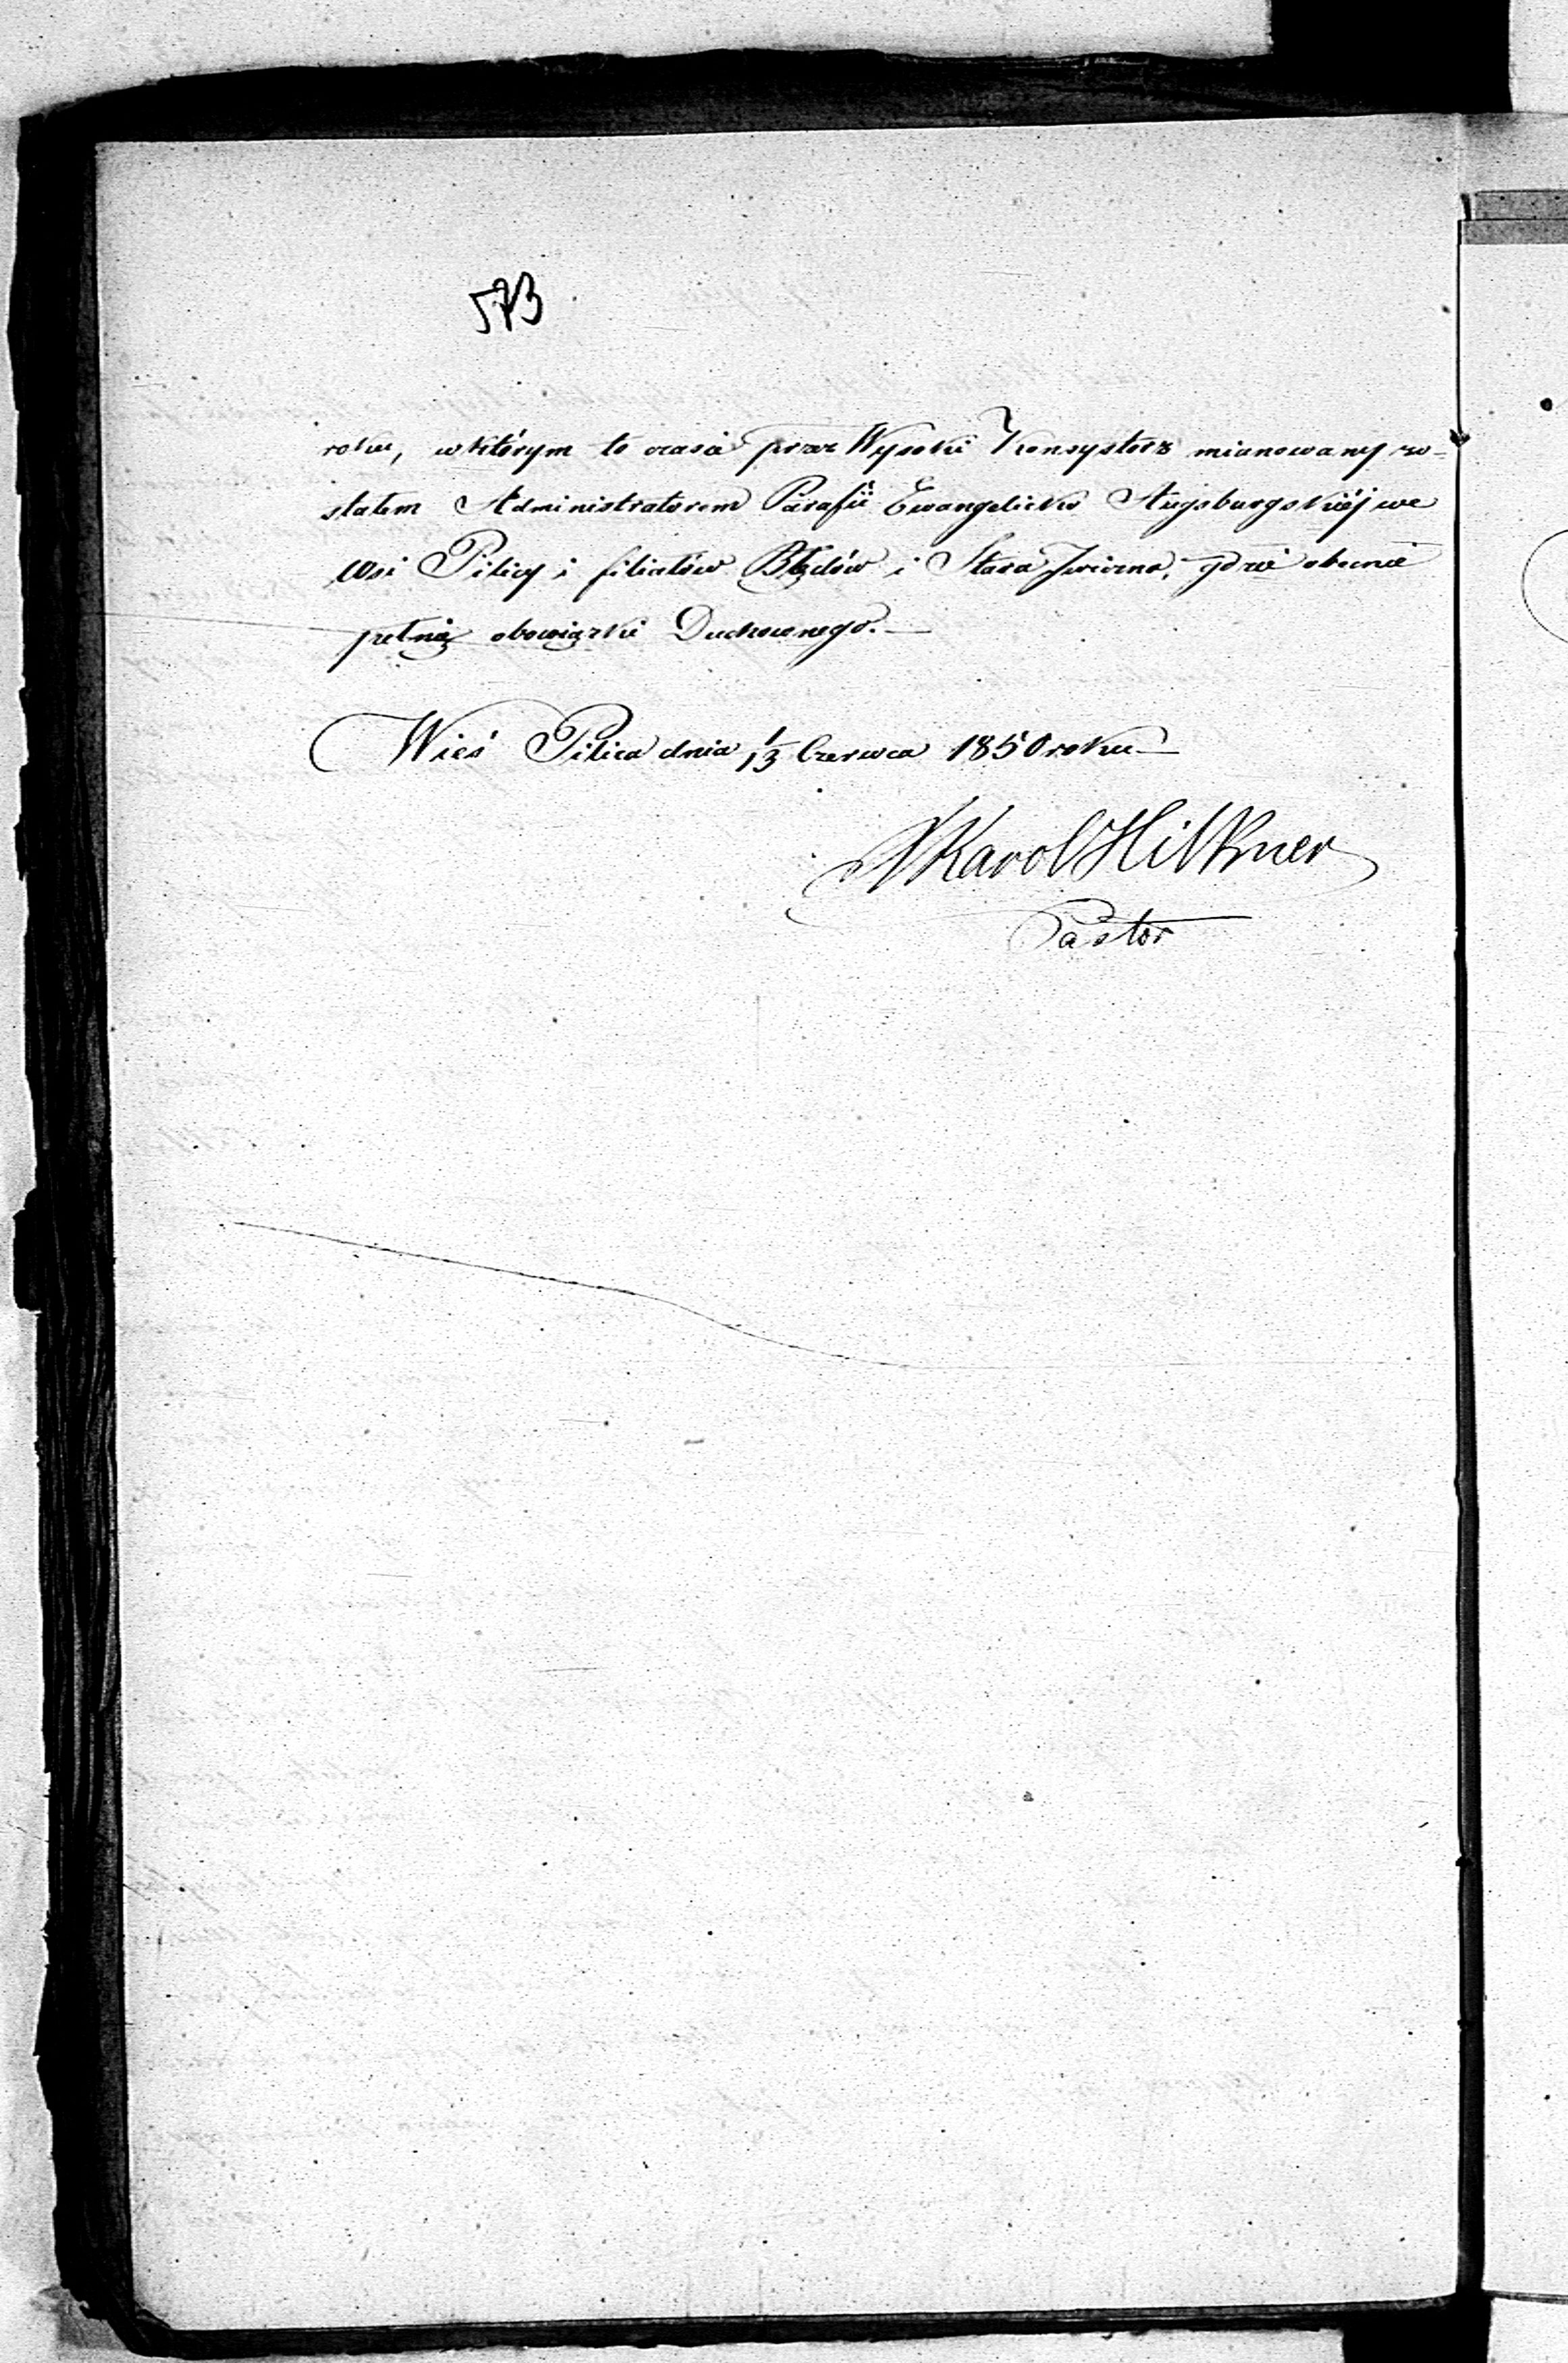 573
roku, w którym to czasie przez Wysoki Konsystorz mianowany zo-
stałem Administratorem Parafii Ewangelicko Augsburgskiéj we
wsi Pilicy i filiałów Błędów i Stara Iwiczna, gdzie obecnie
pełnię obowiązki Duchownego.—
Wieś Pilica dnia 1/13 Czerwca 1850 roku—
Karol Hilkner
Pastor